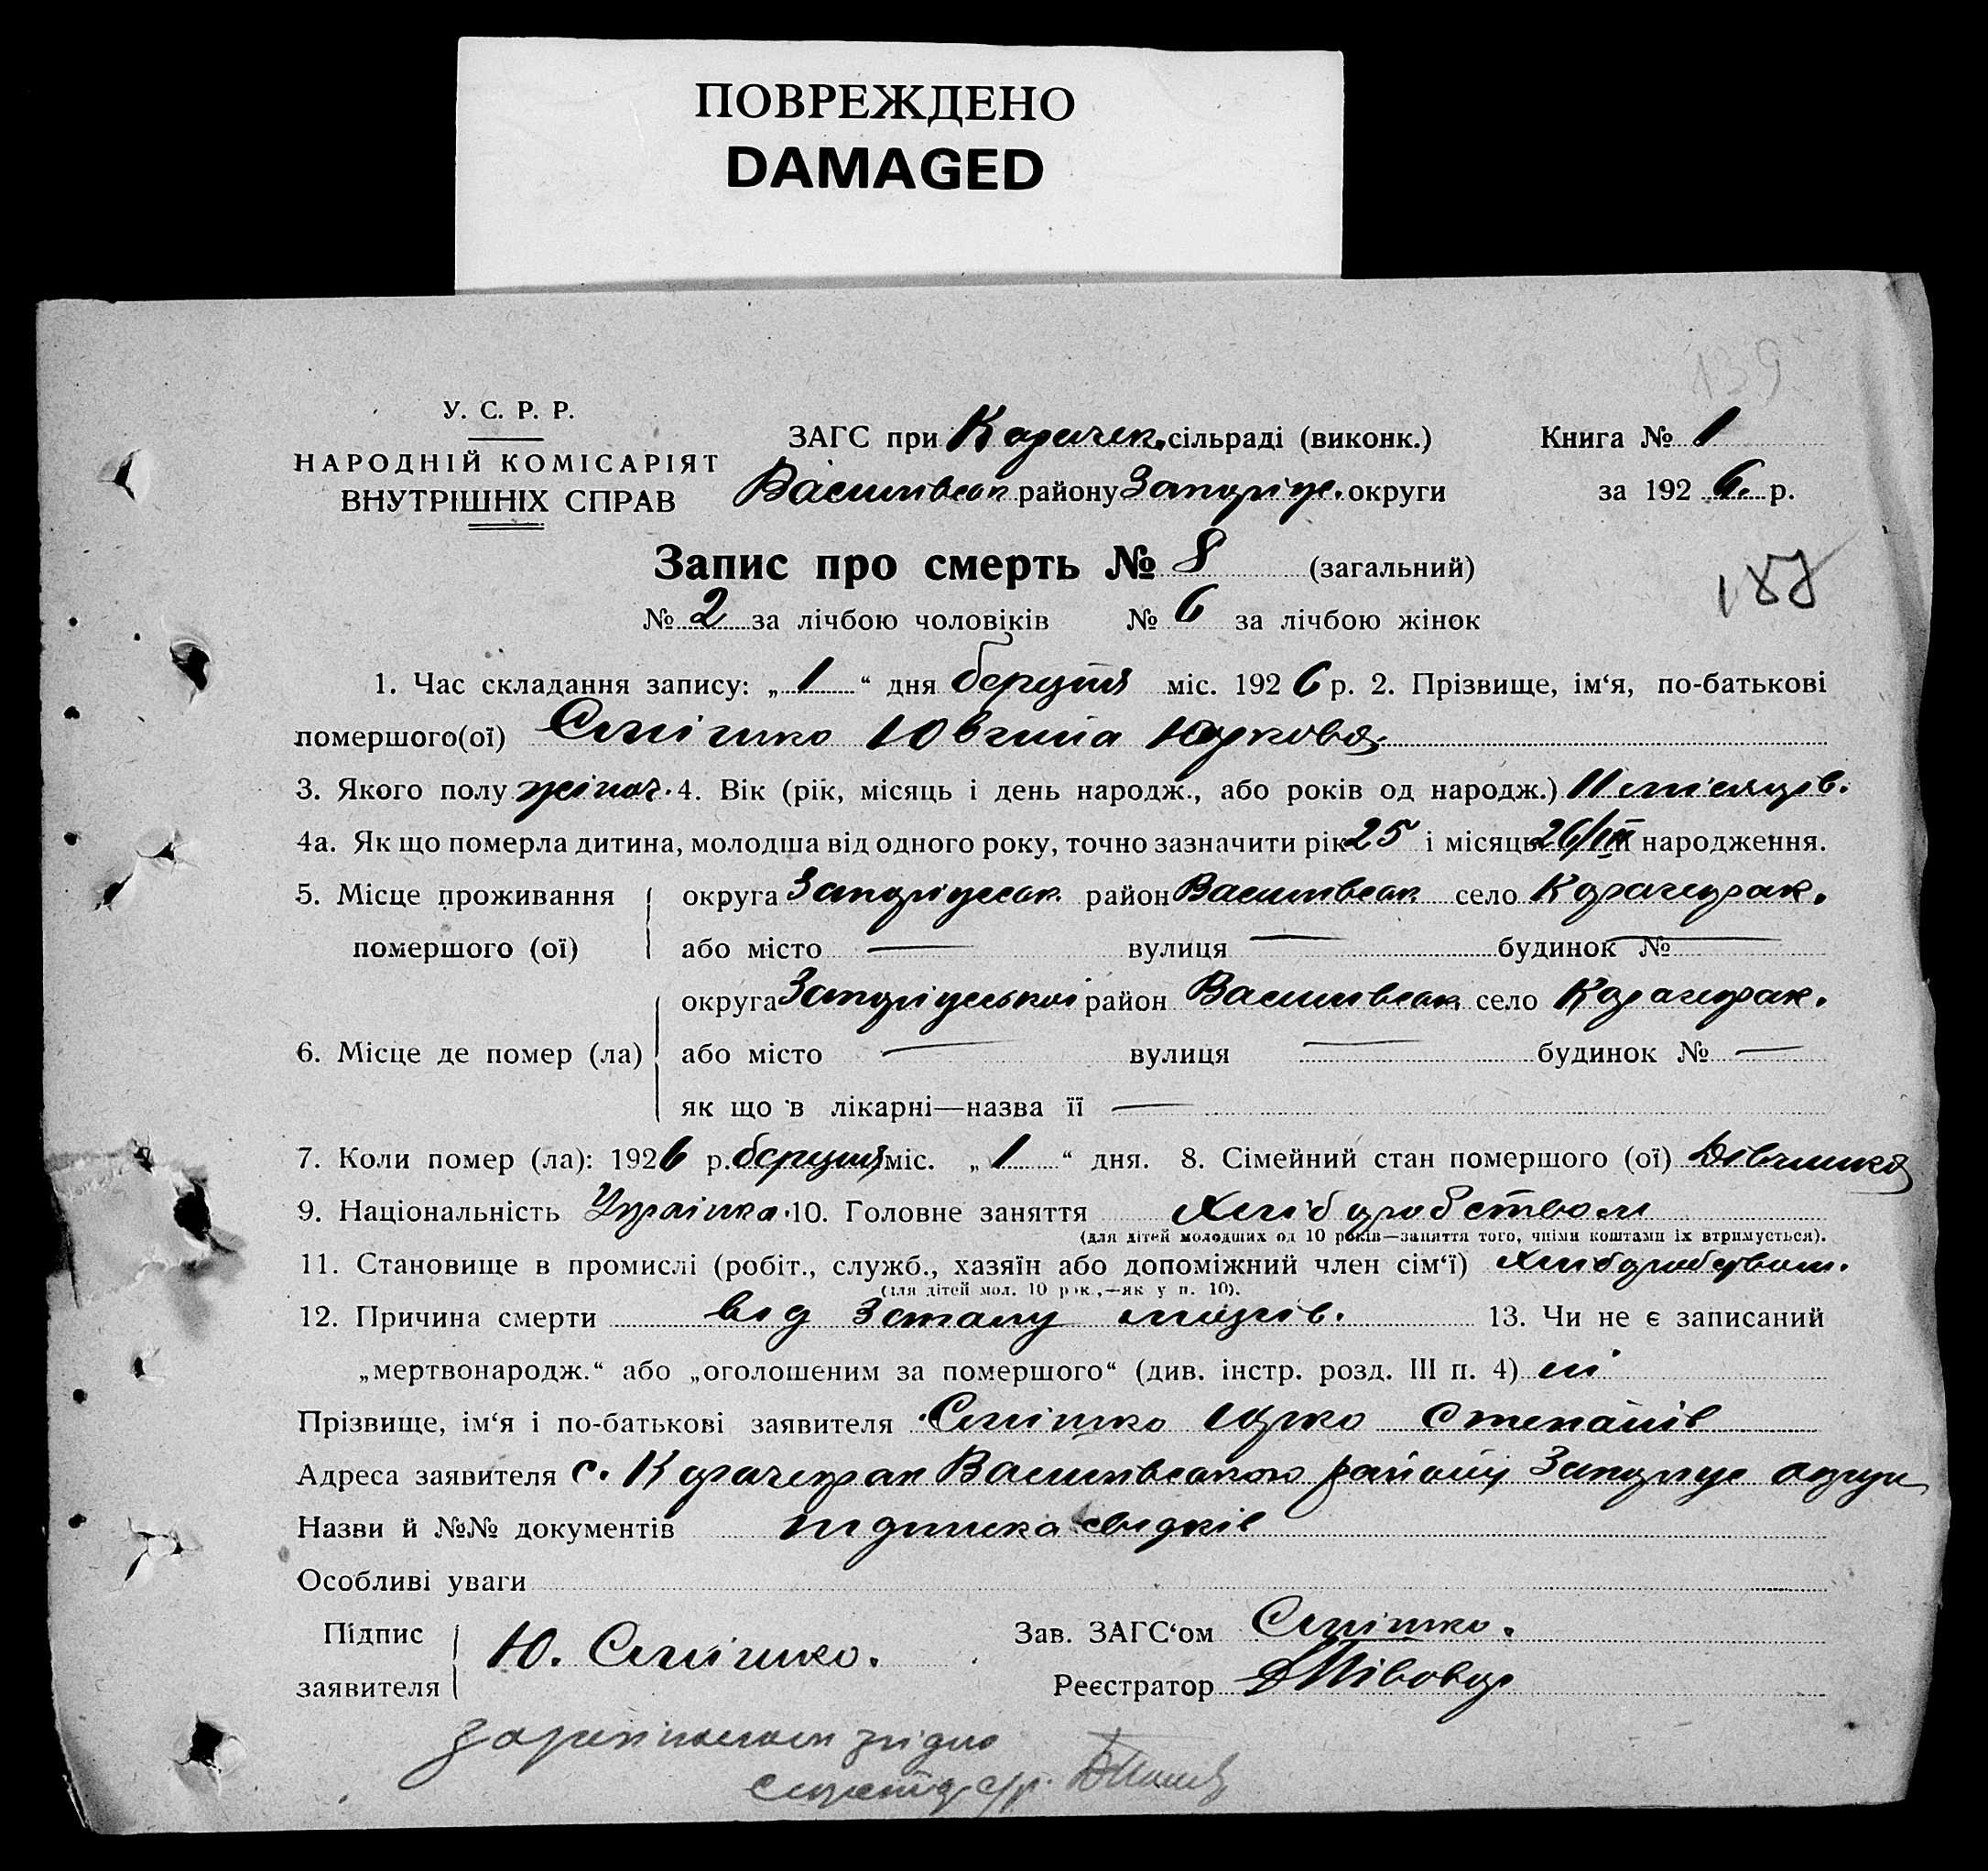 ПОВРЕЖДЕНО
DAMAGED
139
У. С. Р. Р.
НАРОДНІЙ КОМІСАРІЯТ
ВНУТРІШНІХ СПРАВ
ЗАГС при Карачек. сільраді (виконк.)
Василівськ району Запоріж. округи
Книга № 1
за 1926. р.
Запис про смерть № 8 (загальний)
№ 2 за лічбою чоловіків № 6 за лічбою жінок
188
1. Час складання запису: „ 1 “ дня берцня міс. 1926 р. 2. Прізвище, ім‘я, по-батькові
помершого(ої) Сліпко Ювгина Юркова.
3. Якого полу жіноч. 4. Вік (рік, місяць і день народж., або років од народж.) 11 місяців.
4а. Як що померла дитина, молодша від одного року, точно зазначити рік 25 і місяць 26/III народження.
5. Місце проживання округа Запоріжськ район Василівськ село Карачекрак.
помершого (ої) або місто — вулиця — будинок № —
округа Запоріжської район Василівськ село Карачекрак.
6. Місце де помер (ла) або місто — вулиця — будинок № —
як що в лікарні—назва її —
7. Коли помер (ла): 1926 р. берцня міс. „ 1 “ дня. 8. Сімейний стан помершого (ої) Дівчинка
9. Національність Українка. 10. Головне заняття Хліборобством
(для дітей молодших од 10 років—заняття того, чиїми коштами їх втримується).
11. Становище в промислі (робіт., служб., хазяїн або допоміжний член сім‘ї) Хліборобством.
(для дітей мол. 10 рок.,—як у п. 10).
12. Причина смерти від запалу мозгів. 13. Чи не є записаний
„мертвонародж.“ або „оголошеним за помершого“ (див. інстр. розд. III п. 4) ні
Прізвище, ім‘я і по-батькові заявителя Сліпко Юрко Степанів
Адреса заявителя с. Карачекрак Василівського району Запоріж округи
Назви й №№ документів підписка свідків
Особливі уваги
Підпис
заявителя
Ю. Сліпко.
Зав. ЗАГС‘ом Сліпко.
Реєстратор
згідно